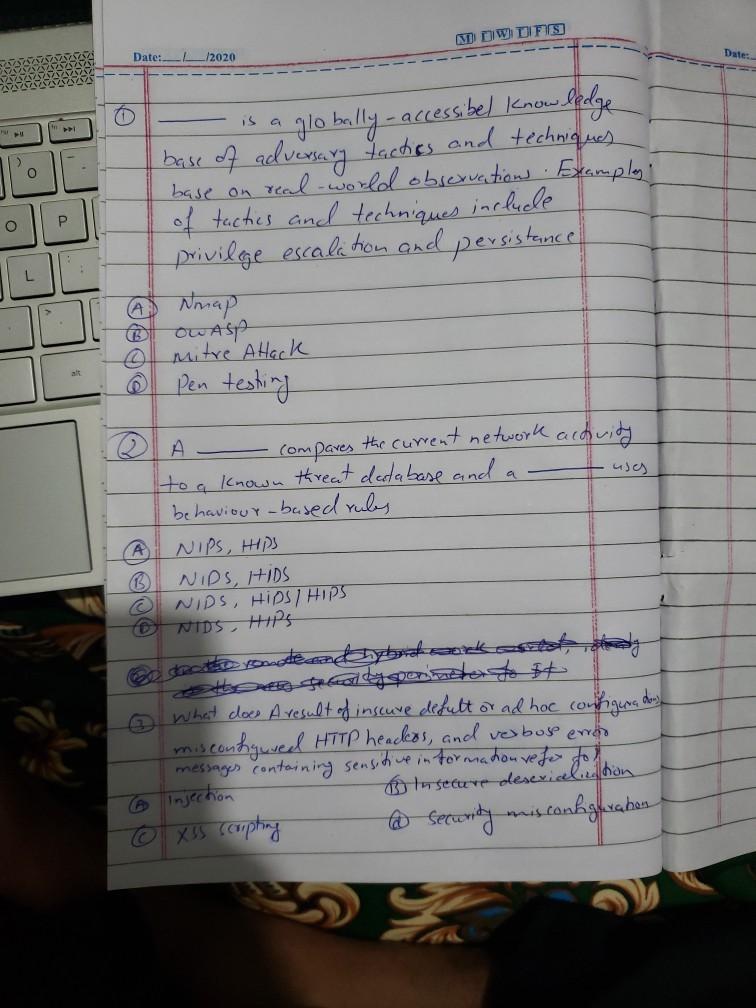 M T W T F S
Date:___/___/2020
Date:
① ______ is a globally-accessibel knowledge
base of adversary tactics and techniques
base on real-world observations. Examples
of tactics and techniques include
privilege escalation and persistance
Ⓐ Nmap
Ⓑ OWASP
Ⓒ Mitre Attack
Ⓓ Pen testing
② A ______ compares the current network activity
to a known threat database and a ______ uses
behaviour-based rules
Ⓐ NIPS, HIDS
Ⓑ NIDS, HIDS
Ⓒ NIDS, HIDS/HIPS
Ⓓ NIDS, HIPS
remote and hybrid work
security perimeter to It
③ What does A result of inscure defult or ad hoc configurations
misconfigured HTTP headers, and verbose erro
messages containing sensitive information refer to?
Ⓐ Injection Ⓑ Insecure deserialization
Ⓒ XSS scripting ⓓ Security misconfiguration
O
P
L
alt